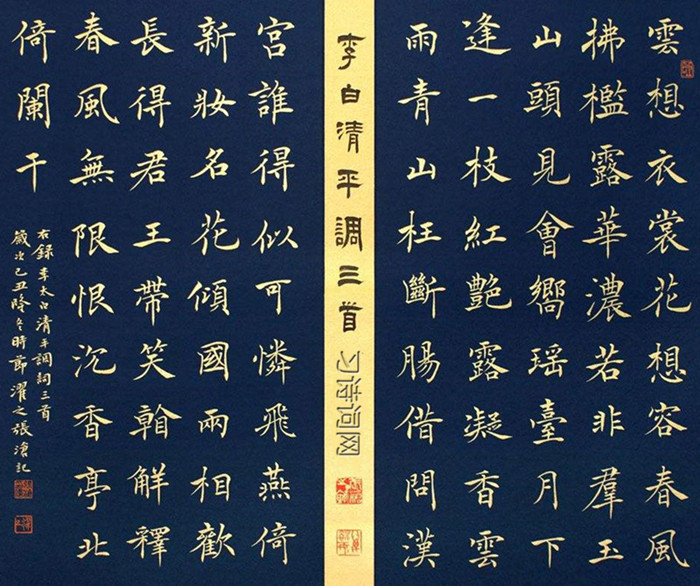 雲想衣裳花想容春風
拂檻露華濃若非羣玉
山頭見會嚮瑤臺月下
逢一枝紅艷露凝香雲
雨青山枉斷腸借問漢
李白清平調三首
习诗词网
宮誰得似可憐飛燕倚
新妝名花傾國兩相歡
長得君王帶笑翰解釋
春風無限恨沉香亭北
倚闌干
右錄李太白清平調詞三首
歲次己丑隆冬時節濯之張滄記